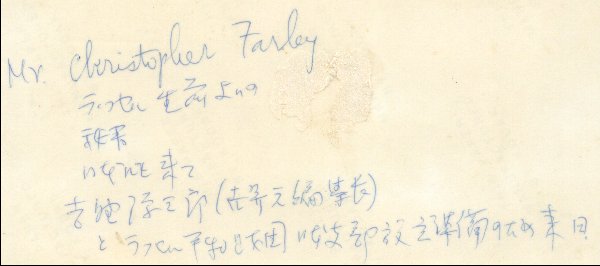 Mr. Christopher Farley
ラッセル生前よりの
秘書
いちど来て
吉野源三郎(世界元編集長)
とラッセル平和財団 支部設立準備のため来日